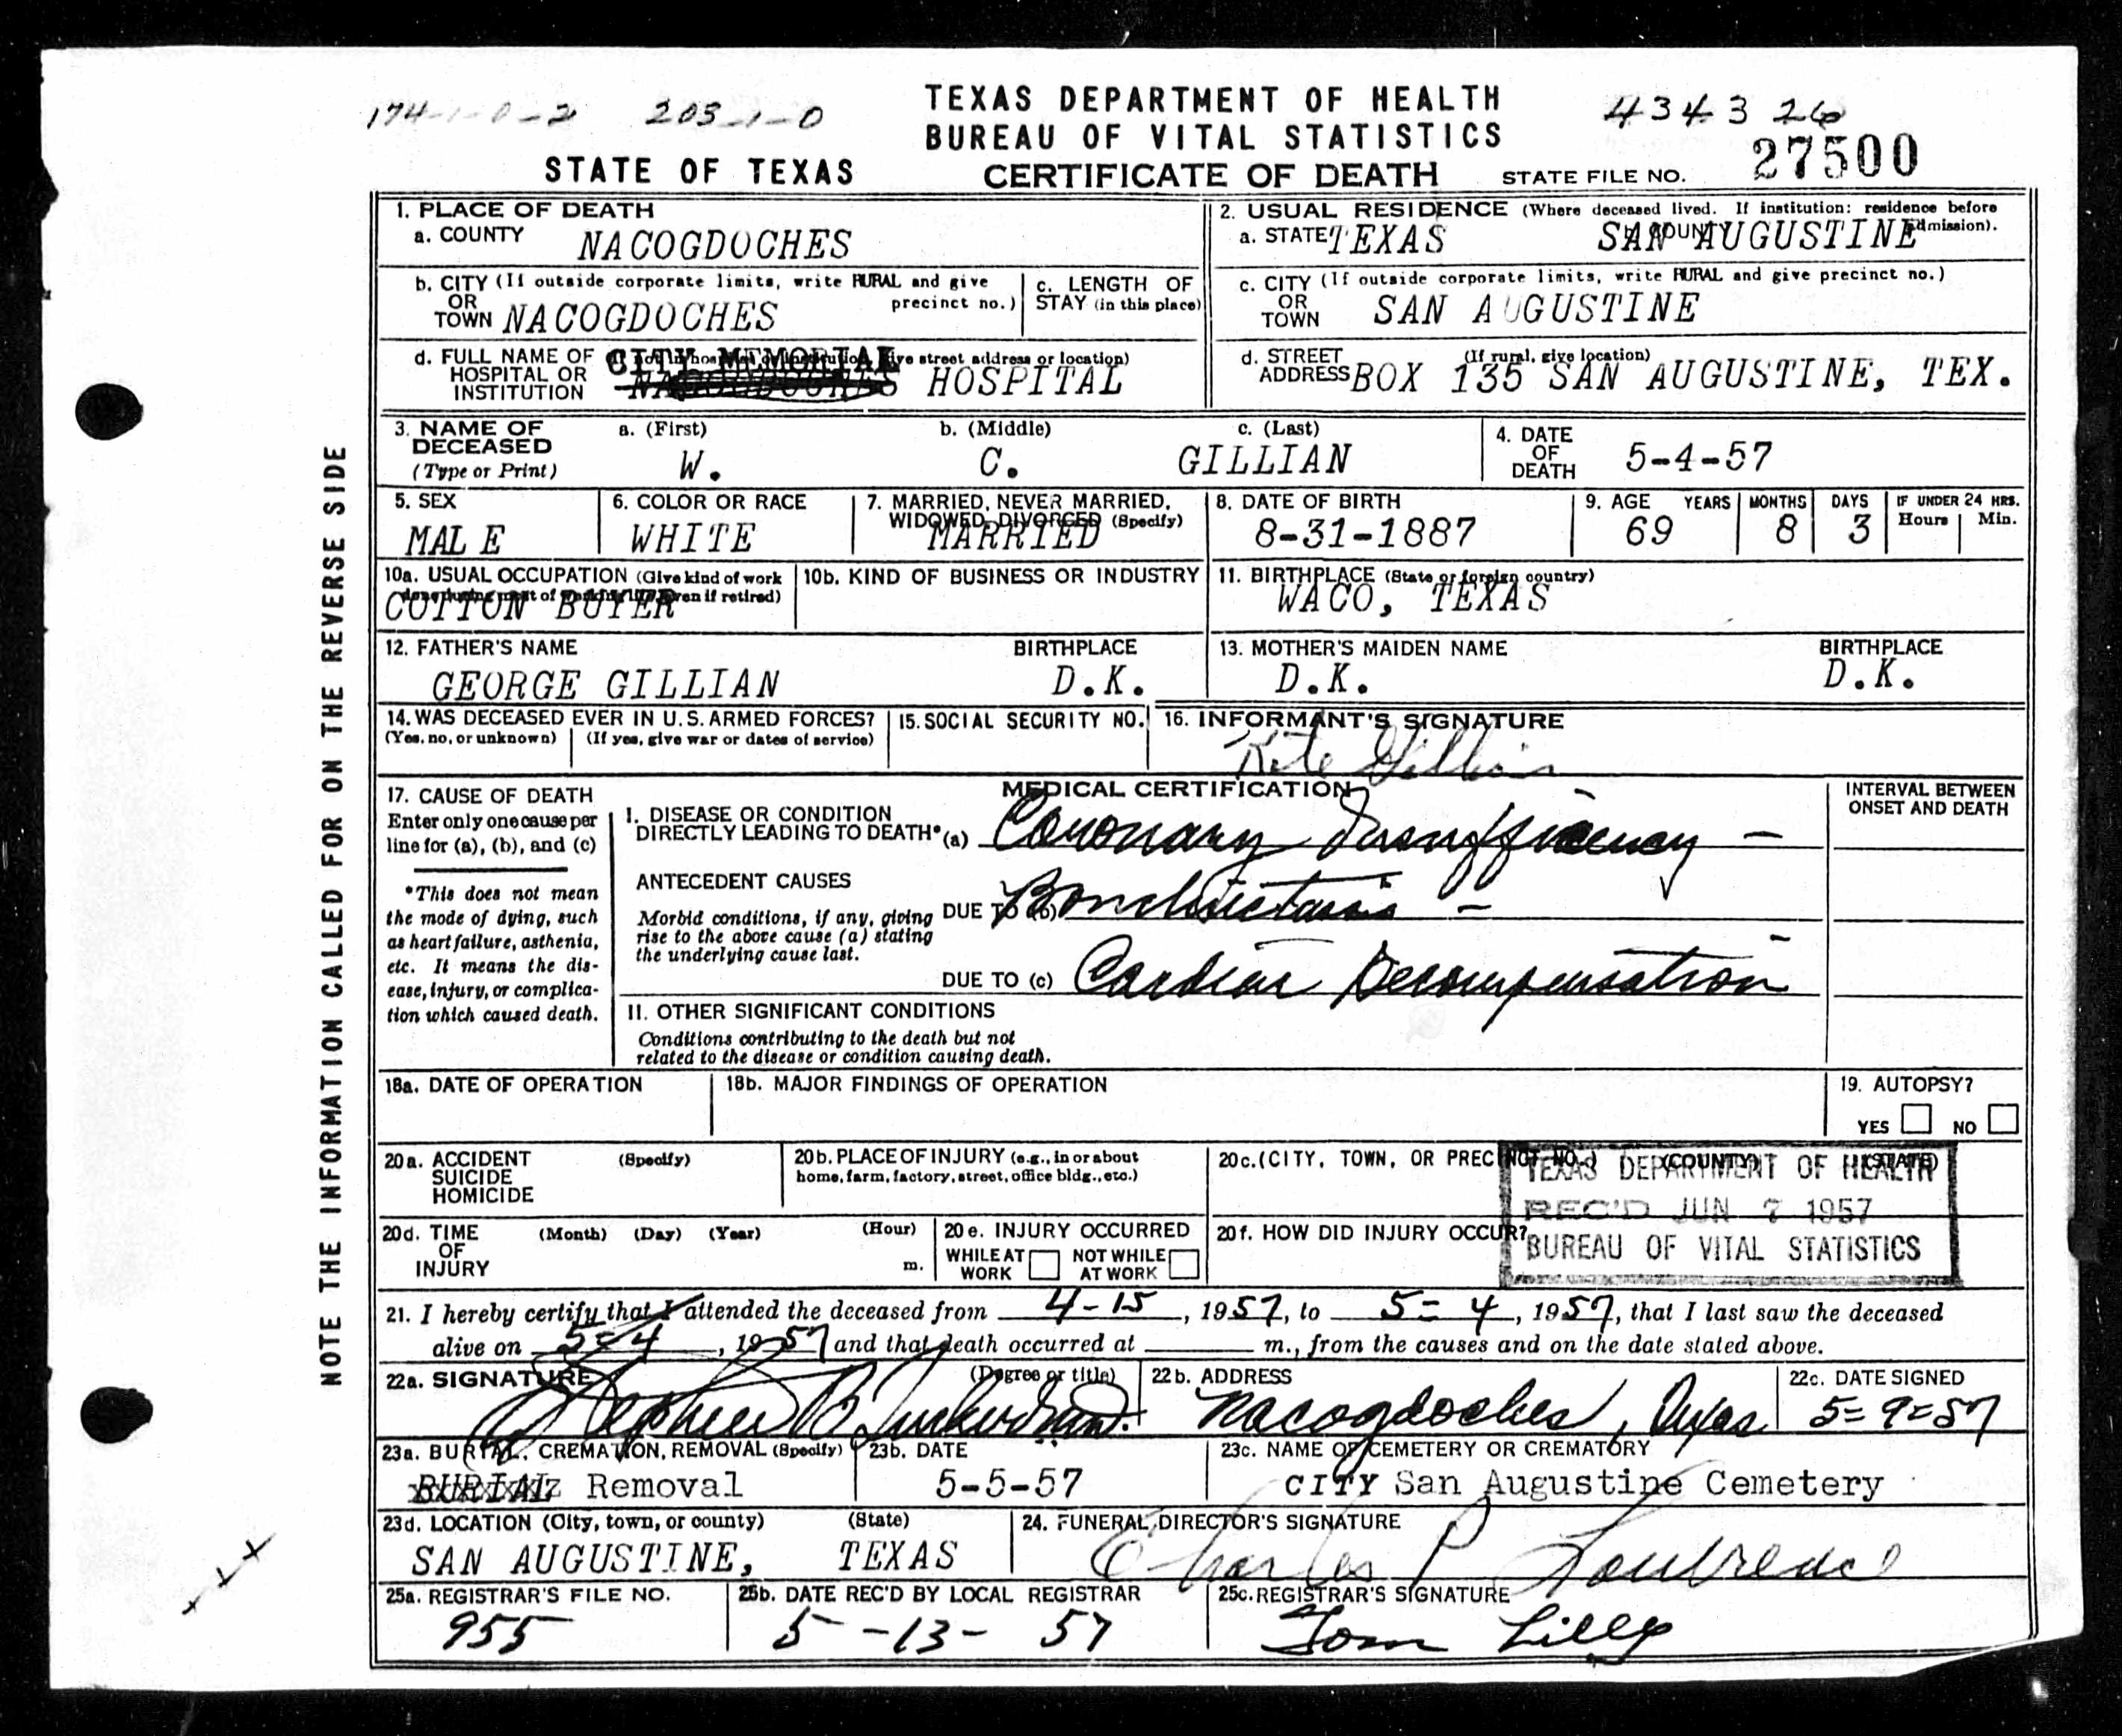 174-1-0-2 203-1-0
TEXAS DEPARTMENT OF HEALTH
BUREAU OF VITAL STATISTICS
434326
STATE OF TEXAS
CERTIFICATE OF DEATH
STATE FILE NO. 27500
NOTE THE INFORMATION CALLED FOR ON THE REVERSE SIDE
1. PLACE OF DEATH
a. COUNTY NACOGDOCHES
2. USUAL RESIDENCE (Where deceased lived. If institution: residence before admission).
a. STATE TEXAS b. COUNTY SAN AUGUSTINE
b. CITY (If outside corporate limits, write RURAL and give precinct no.)
OR TOWN NACOGDOCHES
c. LENGTH OF STAY (in this place)
c. CITY (If outside corporate limits, write RURAL and give precinct no.)
OR TOWN SAN AUGUSTINE
d. FULL NAME OF HOSPITAL OR INSTITUTION (If not in hospital or institution, give street address or location)
CITY MEMORIAL
NACOGDOCHES HOSPITAL
d. STREET ADDRESS (If rural, give location)
BOX 135 SAN AUGUSTINE, TEX.
3. NAME OF DECEASED (Type or Print)
a. (First) W.
b. (Middle) C.
c. (Last) GILLIAN
4. DATE OF DEATH 5-4-57
5. SEX MALE
6. COLOR OR RACE WHITE
7. MARRIED, NEVER MARRIED, WIDOWED, DIVORCED (Specify) MARRIED
8. DATE OF BIRTH 8-31-1887
9. AGE YEARS 69 MONTHS 8 DAYS 3 IF UNDER 24 HRS. Hours Min.
10a. USUAL OCCUPATION (Give kind of work done during most of working life, even if retired)
COTTON BUYER
10b. KIND OF BUSINESS OR INDUSTRY
11. BIRTHPLACE (State or foreign country)
WACO, TEXAS
12. FATHER'S NAME BIRTHPLACE
GEORGE GILLIAN D.K.
13. MOTHER'S MAIDEN NAME BIRTHPLACE
D.K. D.K.
14. WAS DECEASED EVER IN U.S. ARMED FORCES?
(Yes, no, or unknown) (If yes, give war or dates of service)
15. SOCIAL SECURITY NO.
16. INFORMANT'S SIGNATURE
Gillian
MEDICAL CERTIFICATION
INTERVAL BETWEEN ONSET AND DEATH
17. CAUSE OF DEATH
Enter only one cause per line for (a), (b), and (c)
*This does not mean the mode of dying, such as heart failure, asthenia, etc. It means the disease, injury, or complication which caused death.
I. DISEASE OR CONDITION DIRECTLY LEADING TO DEATH* (a) Coronary Insufficiency -
ANTECEDENT CAUSES
Morbid conditions, if any, giving rise to the above cause (a) stating the underlying cause last.
DUE TO (b) Bronchiectasis -
DUE TO (c) Cardiac Decompensation
II. OTHER SIGNIFICANT CONDITIONS
Conditions contributing to the death but not related to the disease or condition causing death.
18a. DATE OF OPERATION
18b. MAJOR FINDINGS OF OPERATION
19. AUTOPSY?
YES NO
20a. ACCIDENT SUICIDE HOMICIDE (Specify)
20b. PLACE OF INJURY (e.g., in or about home, farm, factory, street, office bldg., etc.)
20c. (CITY, TOWN, OR PRECINCT NO.) (COUNTY) (STATE)
TEXAS DEPARTMENT OF HEALTH
REC'D JUN 7 1957
BUREAU OF VITAL STATISTICS
20d. TIME OF INJURY (Month) (Day) (Year) (Hour) m.
20e. INJURY OCCURRED
WHILE AT WORK NOT WHILE AT WORK
20f. HOW DID INJURY OCCUR?
21. I hereby certify that I attended the deceased from 4-15, 1957, to 5-4, 1957, that I last saw the deceased
alive on 5-4, 1957 and that death occurred at m., from the causes and on the date stated above.
22a. SIGNATURE (Degree or title)
Stephen B. Tucker
22b. ADDRESS
Nacogdoches, Texas
22c. DATE SIGNED
5-9-57
23a. BURIAL, CREMATION, REMOVAL (Specify)
BURIAL Removal
23b. DATE
5-5-57
23c. NAME OF CEMETERY OR CREMATORY
CITY San Augustine Cemetery
23d. LOCATION (City, town, or county) (State)
SAN AUGUSTINE, TEXAS
24. FUNERAL DIRECTOR'S SIGNATURE
Charles P
25a. REGISTRAR'S FILE NO.
955
25b. DATE REC'D BY LOCAL REGISTRAR
5-13-57
25c. REGISTRAR'S SIGNATURE
Tom Lilly